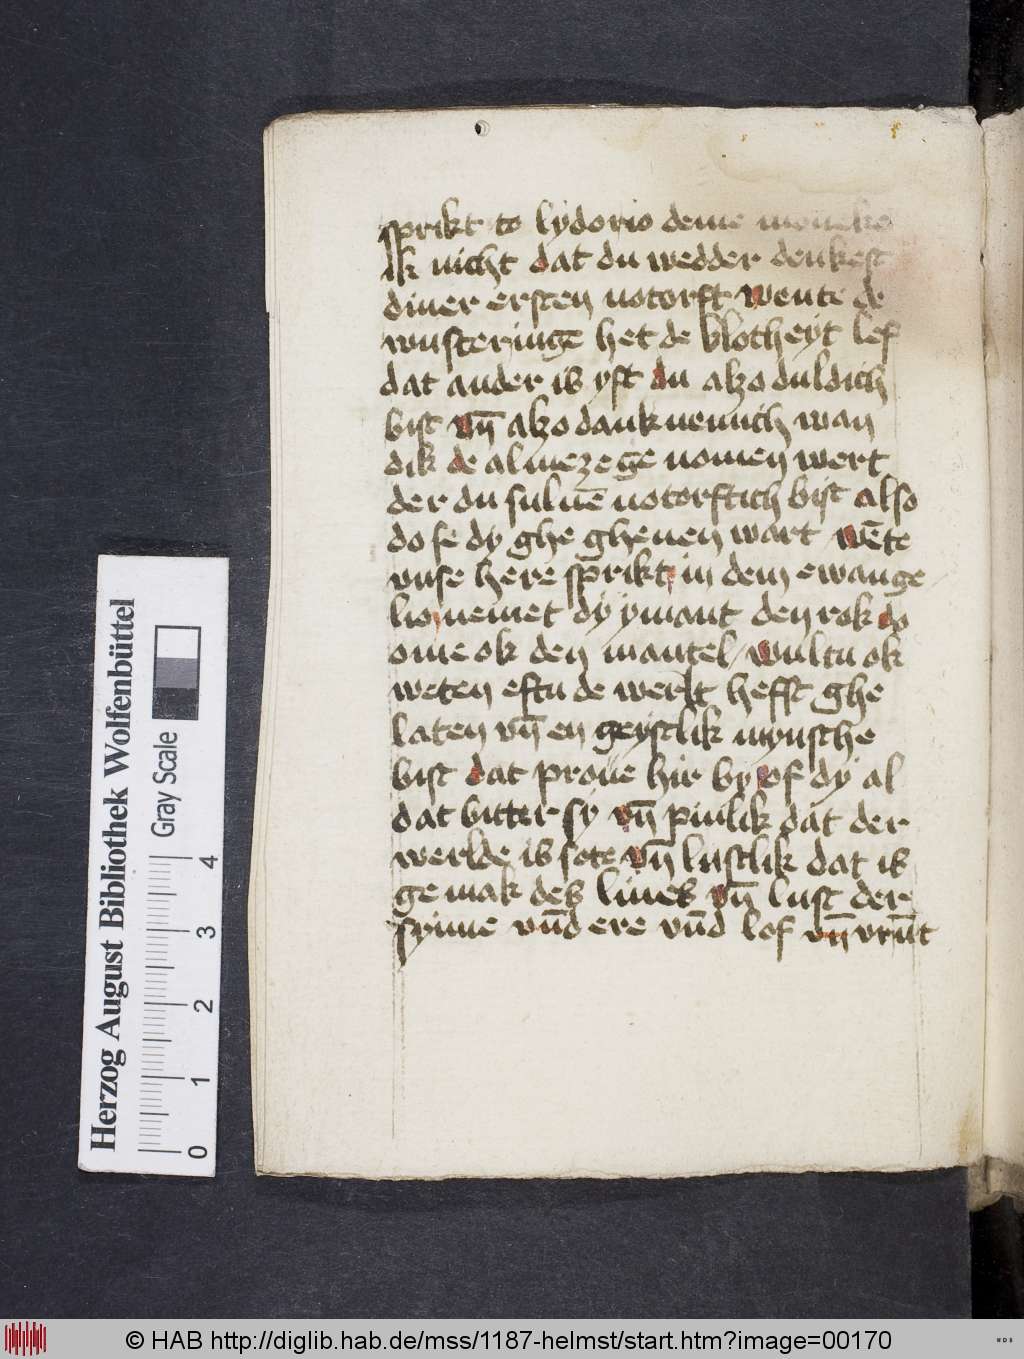 sprikt to lydorio deme moneke
ik nicht dat du wedder denkest
diner ersten notorft wente de
wusteringe het de blotheyt lef
dat ander is yft du alzo duldich
bist vn̄ alzo danknemich wan
dik de almeze ge nomen wert
der du suluē notorftich bist also
do se dy ghe gheuen wart wēte
vnse here sprikt in dem ewange
lio nemet dy ymant den rok do
ome ok den mantel / wultu ok
weten eftu de werlt hefft ghe
laten vn̄ en geystlik mynsche
bist dat proue hir by of dy al
dat bitter sy vn̄ pinlik dat der
werlde is sote vn̄ lustlik dat is
gemak des liues vn̄ lust der
synne vn̄d ere vn̄d lof vn̄ vrūt
Herzog August Bibliothek Wolfenbüttel
Gray Scale
0 1 2 3 4
© HAB http://diglib.hab.de/mss/1187-helmst/start.htm?image=00170